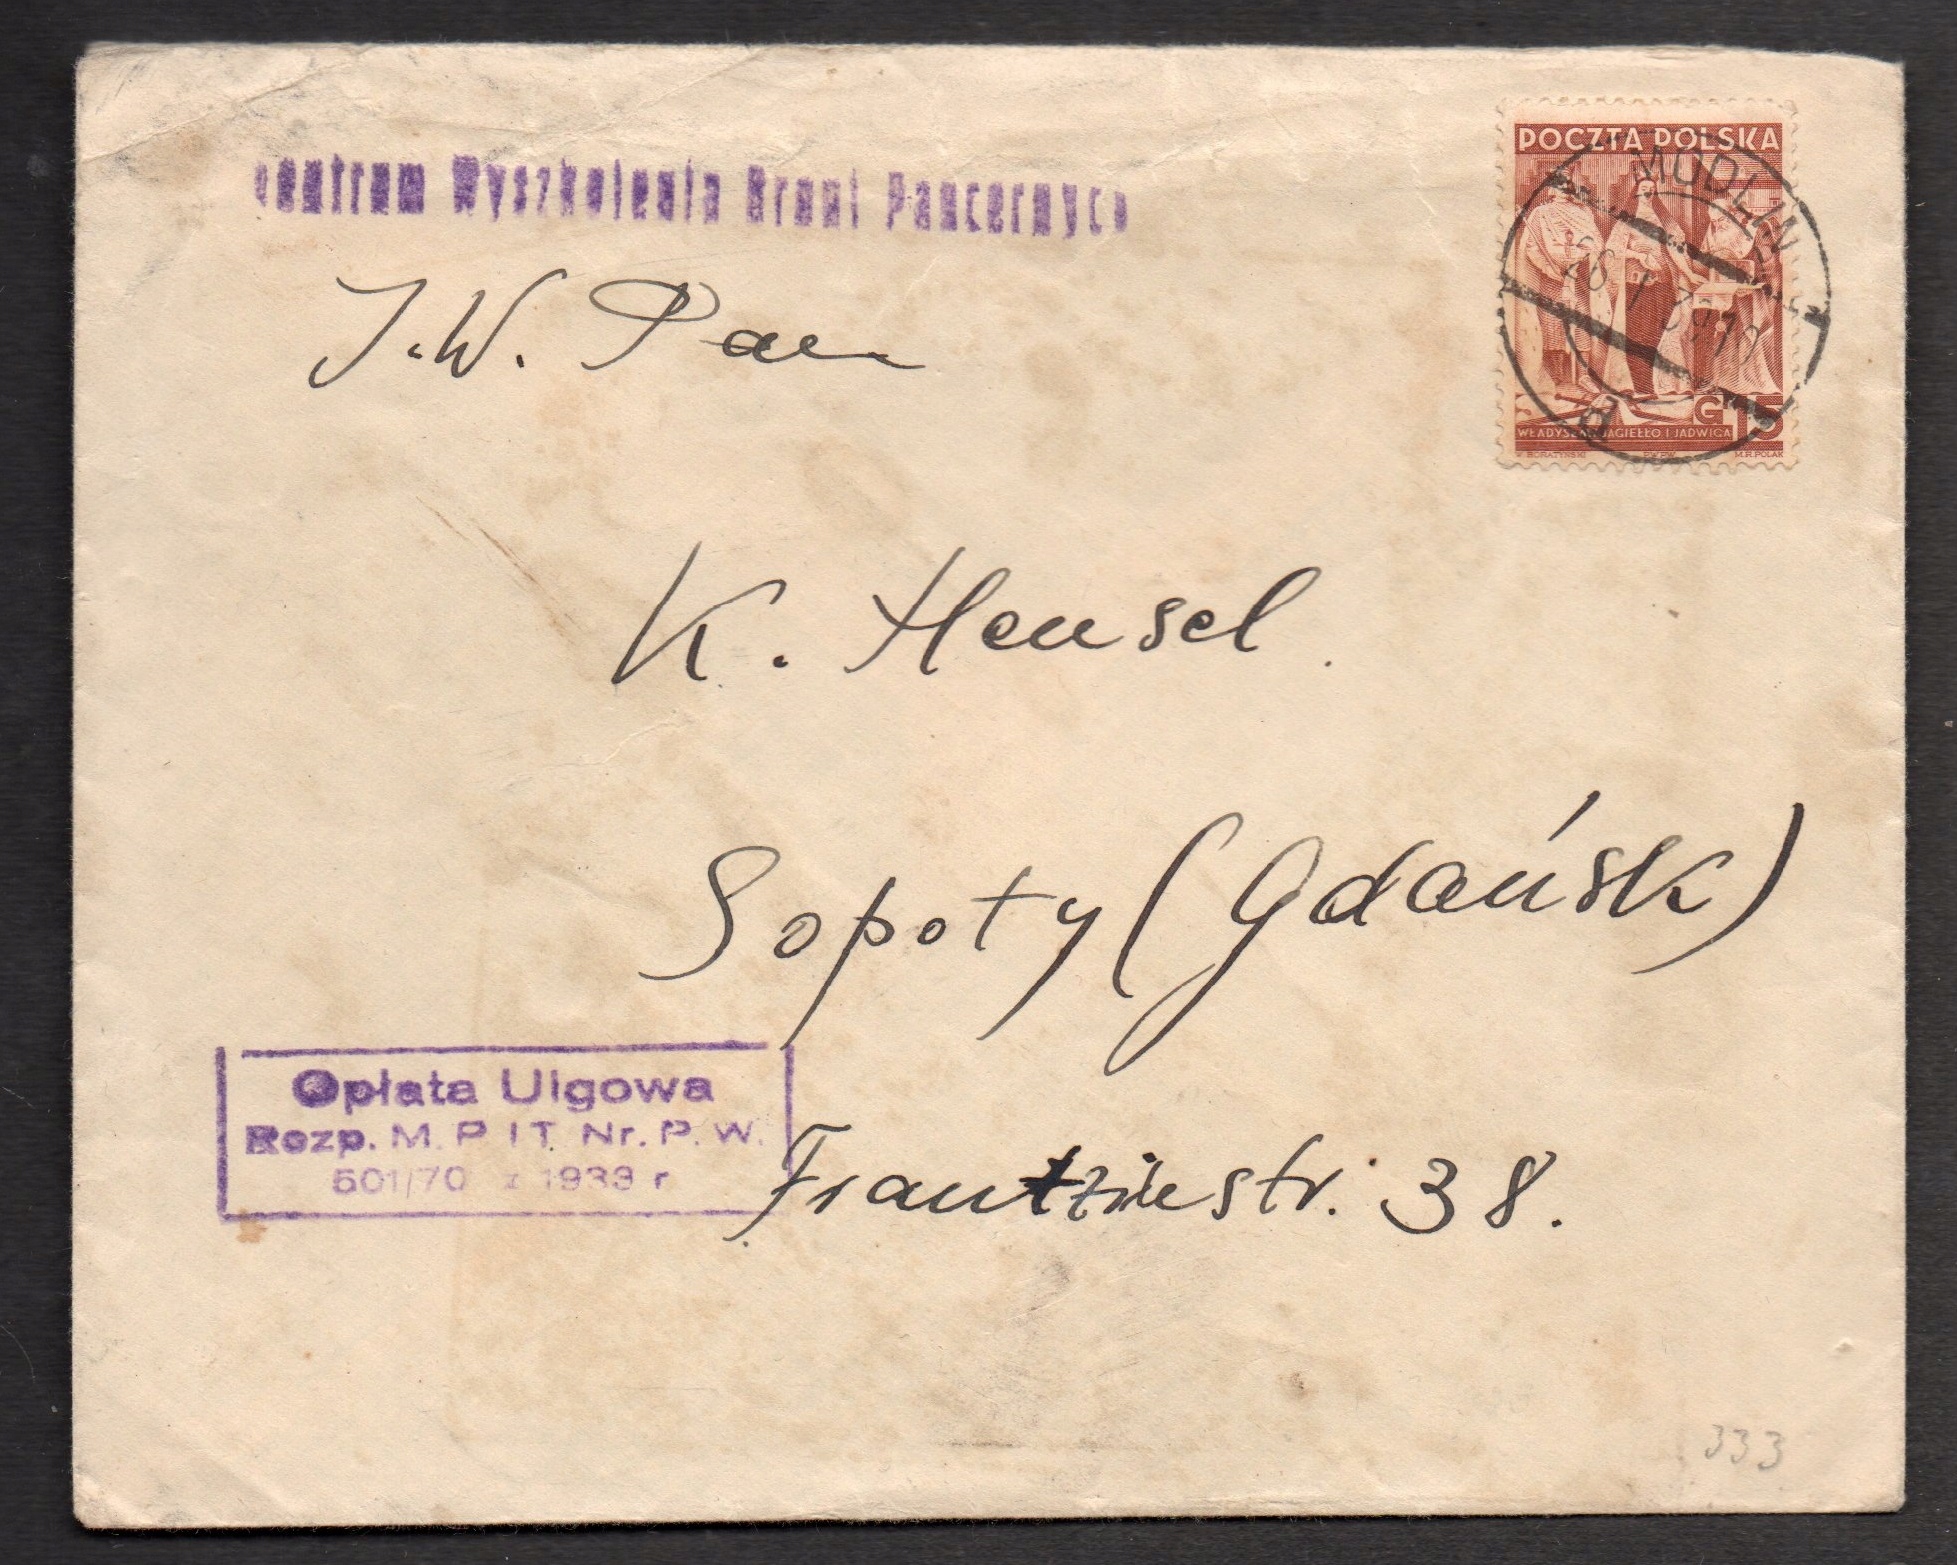 Centrum Wyszkolenia Broni Pancernych
POCZTA POLSKA
MODLIN
26 I 39 19
d
G 15
WŁADYSŁAW JAGIEŁŁO I JADWIGA
W. BORATYŃSKI P.W.P.W. M.R. POLAK
J.W. Pan
K. Hensel.
Sopoty (Gdańsk)
Opłata Ulgowa
Rozp. M. P. I T. Nr. P. W.
501/70 z 1933 r
38.
333